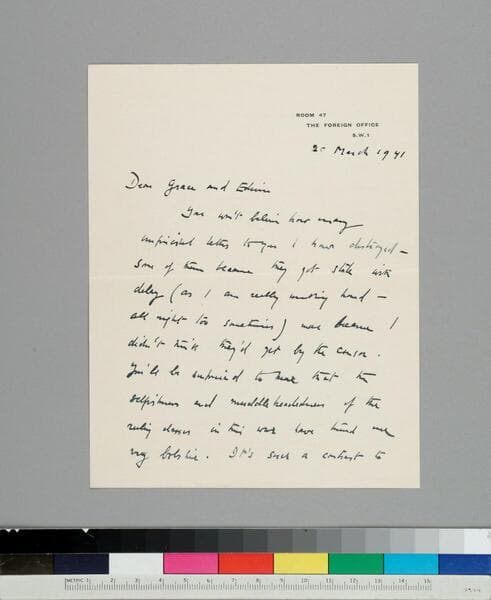 ROOM 47
THE FOREIGN OFFICE
S.W.1
25 March 1941
Dear Grace and Edwin
You won't believe how many
unfinished letters to you I have destroyed –
some of them because they got stale with
delay (as I am really working hard –
all night too sometimes) more because I
didn't think they'd get by the censor.
You'll be surprised to hear that the
selfishness and muddleheadedness of the
ruling classes in this war have turned me
very bolshie. It's such a contrast to
METRIC 1 2 3 4 5 6 7 8 9 10 11 12 13 14 15